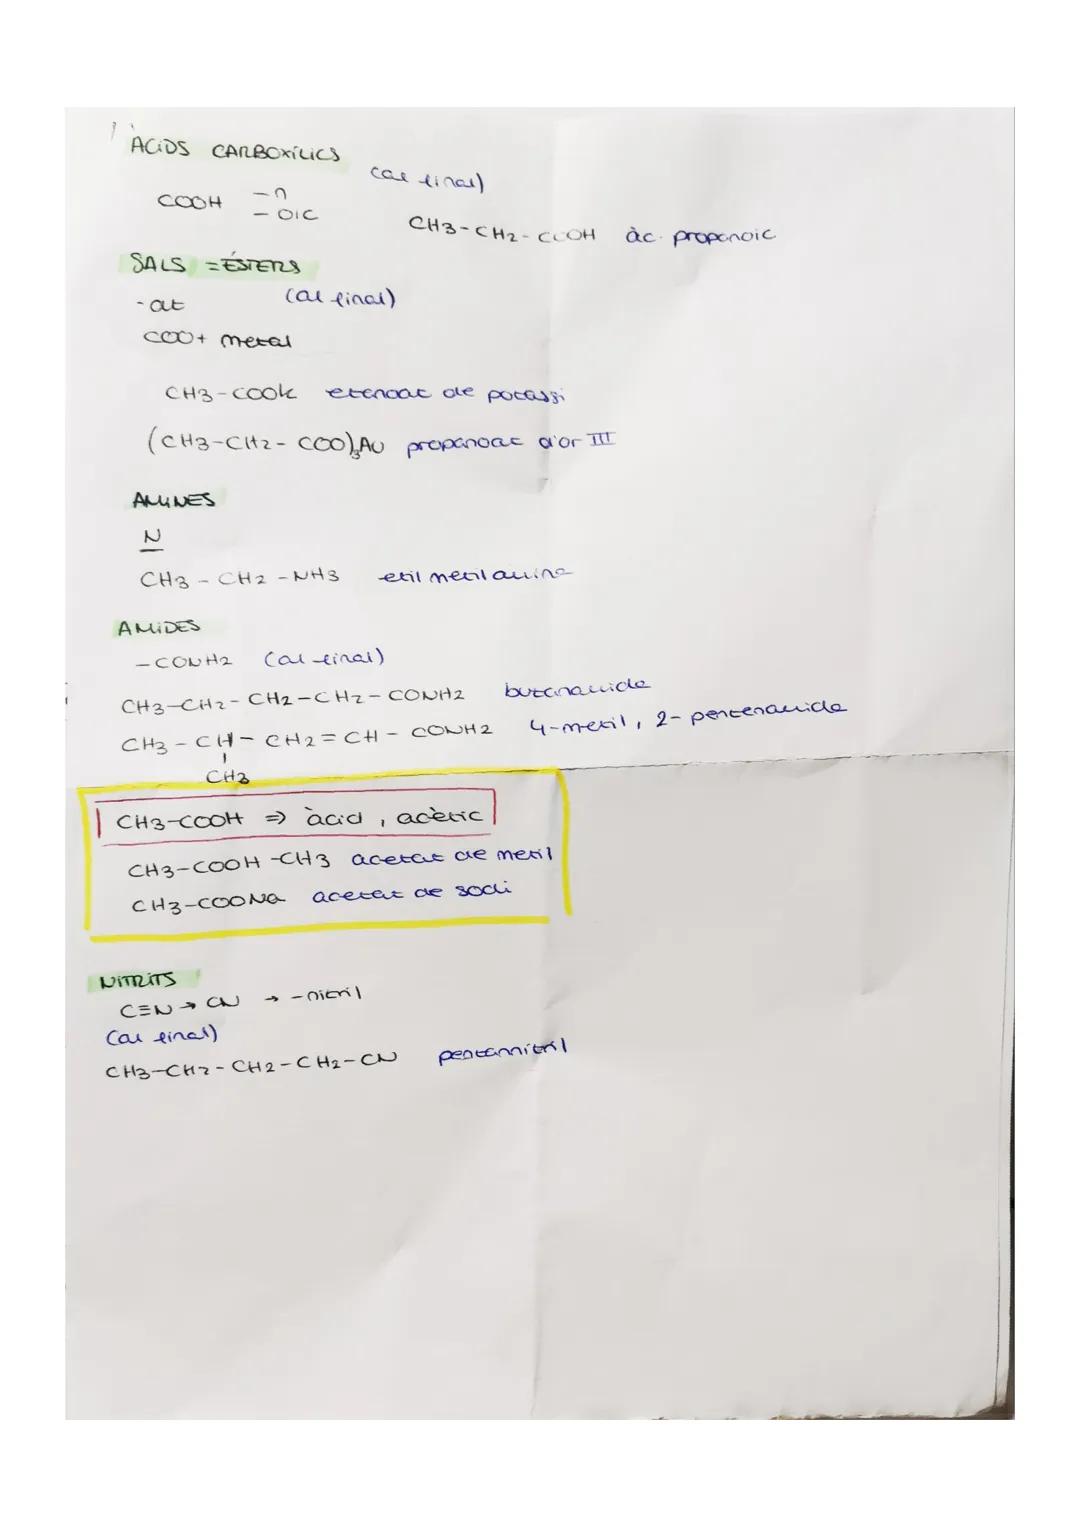 ÀCIDS CARBOXÍLICS
(al final)
COOH -n
- OIC
CH3-CH2-COOH àc. propanoic
SALS = ÉSTERS
-at (al final)
COO+ metal
CH3-COOK etanoat de potassi
(CH3-CH2-COO)3Au propanoat d'or III
AMINES
N
CH3-CH2-NH3 etil metil amina
AMIDES
-CONH2 (al final)
CH3-CH2-CH2-CH2-CONH2 butanamida
CH3-CH-CH2=CH-CONH2 4-metil, 2-pentenamida
CH3
CH3-COOH ⇒ àcid, acètic
CH3-COOH-CH3 acetat de metil
CH3-COONa acetat de sodi
NITRITS
C≡N → CN → -nitril
(al final)
CH3-CH2-CH2-CH2-CN pentannitril